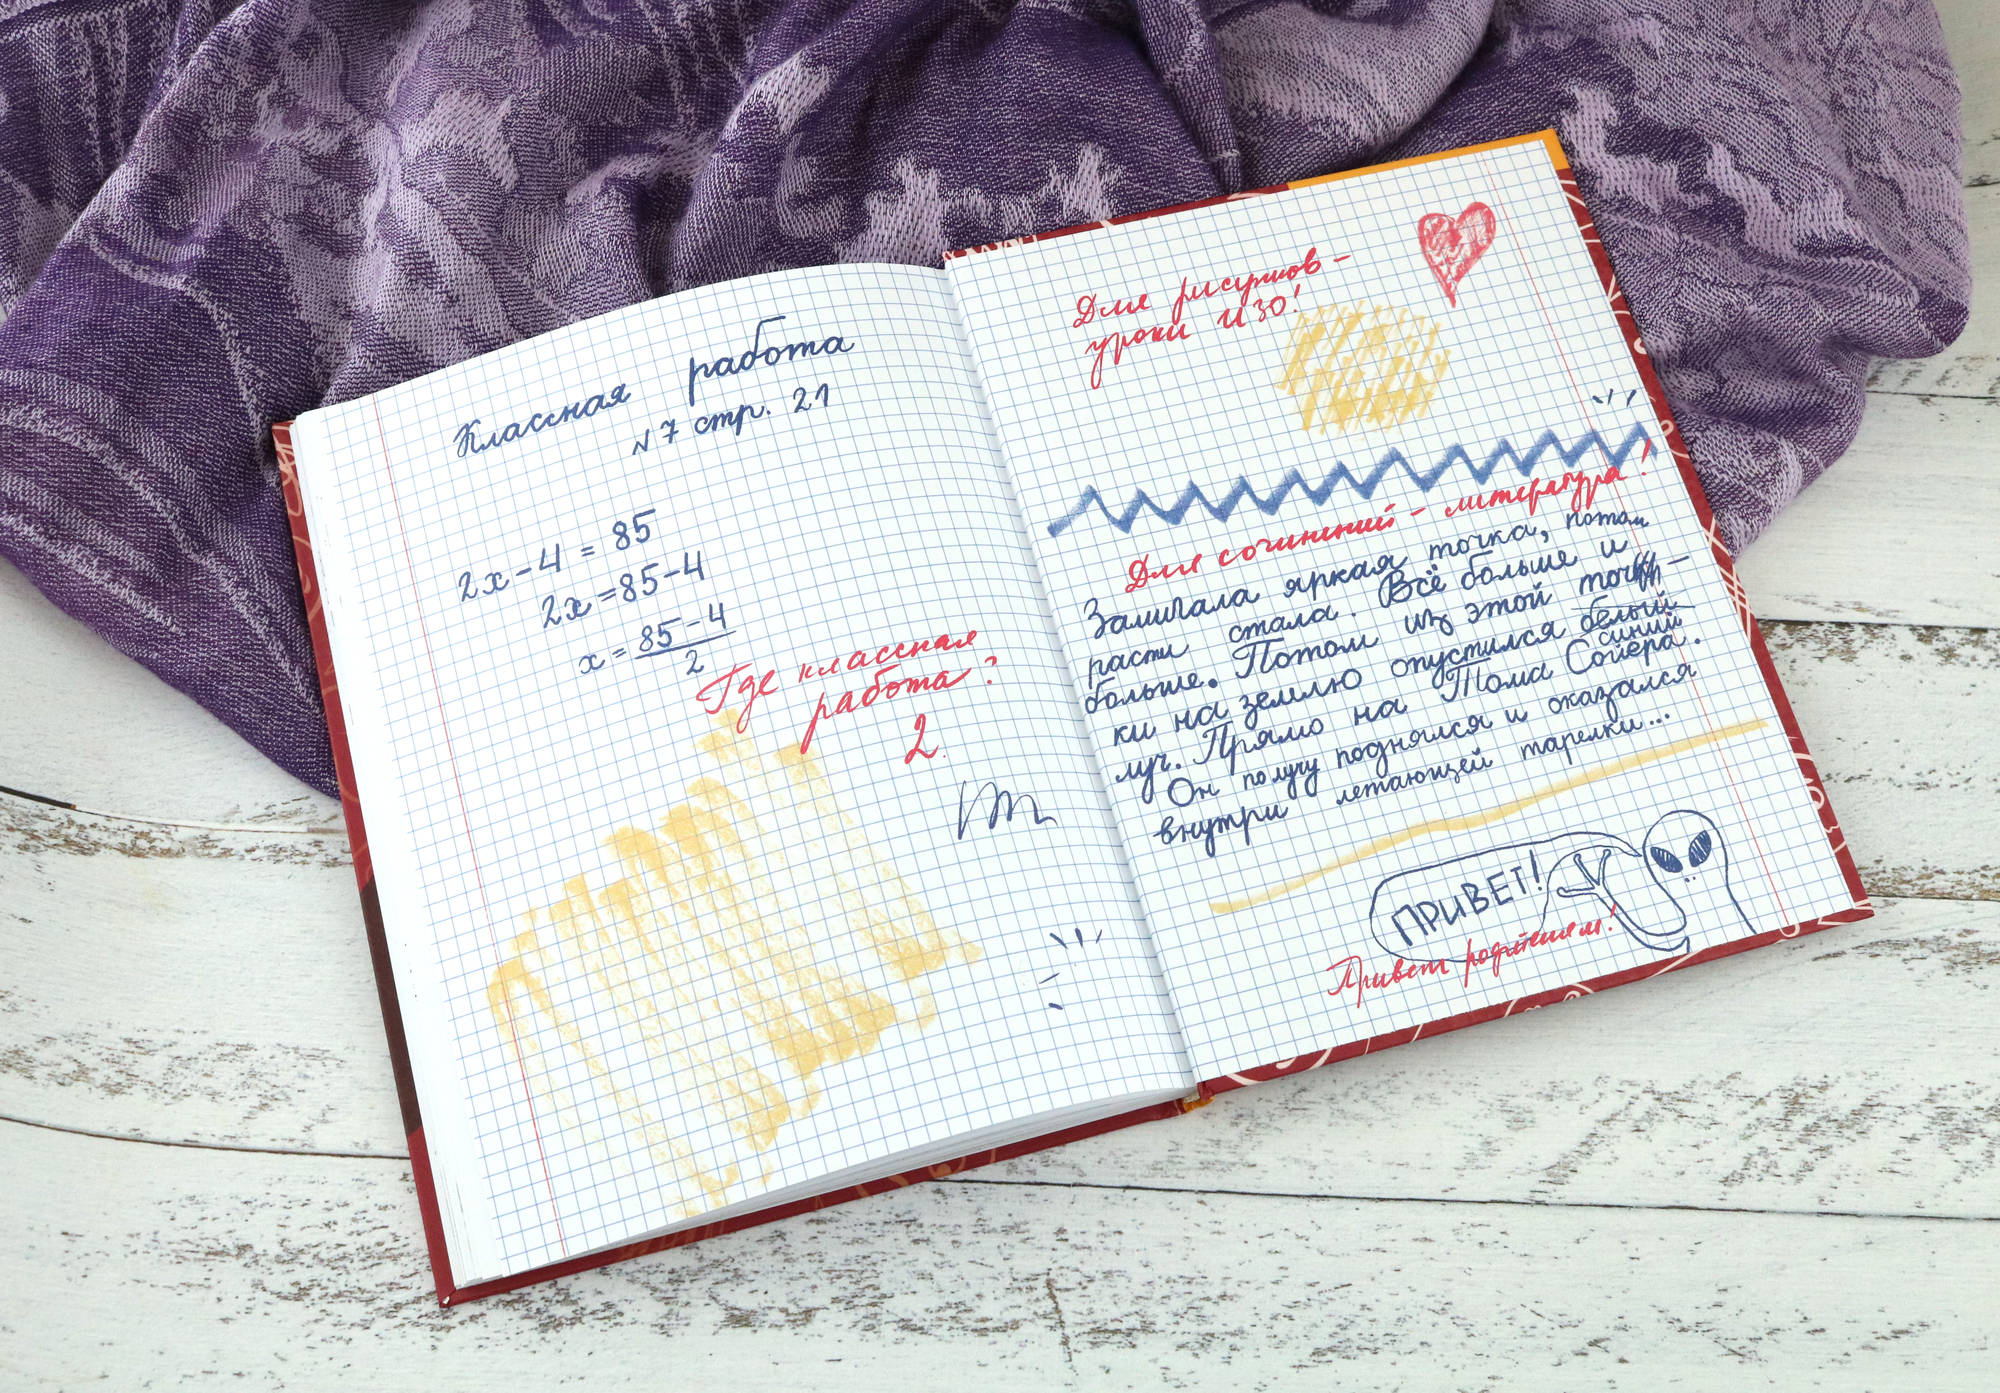 Классная работа
№7 стр. 21
2x-4=85
2x=85-4
x=85-4
2
Где классная
работа?
2.
Для рисунков -
уроки ИЗО!
Для сочинений - литература!
Замигала яркая точка, потом
расти стала. Всё больше и
больше. Потом из этой точ-
ки на землю опустился белый
синий
луч. Прямо на Тома Сойера.
Он получу поднялся и оказался
внутри летающей тарелки...
ПРИВЕТ!
Привет родителям!